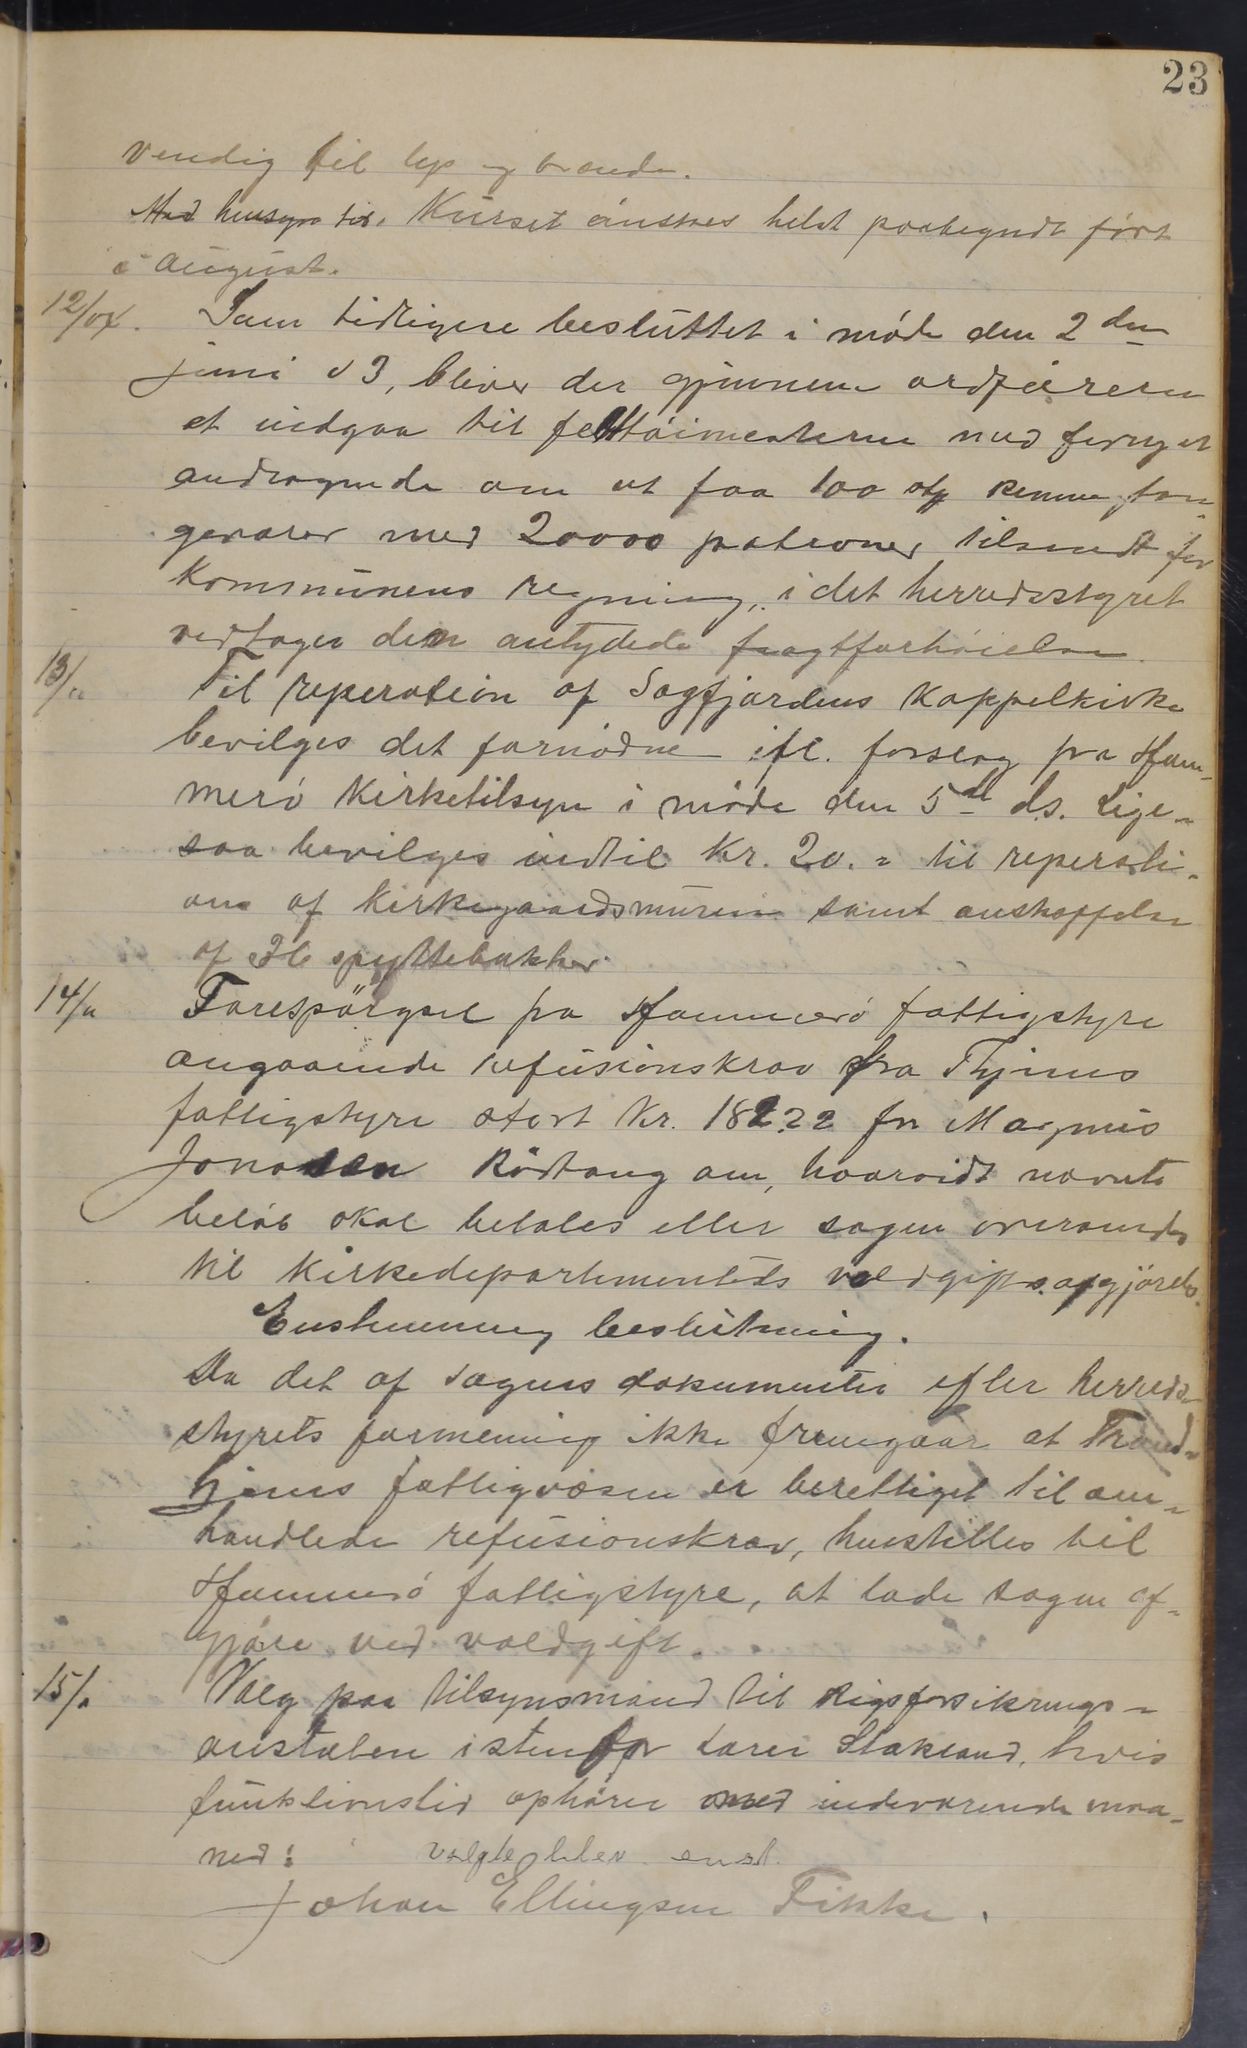 23
vendig til lys og brænde.
Med hensyn til. Kurset ønskes helst paabegyndt først
i august.
12/04. Som tidligere besluttet i møde den 2den
juni 03, bliver der gjennem ordføreren
at indgaa til felttøimesteren med fornyet
andragende om at faa 100 stk remmington
geværer med 20000 patroner tilsendt for
kommunens regning, i det herredsstyret
vedtager den antydede fragtforhøielse.
13/" Til reperation af Sagfjordens kappelkirke
bevilges det fornødne ifl. forslag fra Ham-
merø kirketilsyn i møde den 5te ds. Lige-
saa bevilges indtil Kr. 20.= til reperati-
on af kirkegaardsmuren samt anskaffelse
af spyttebakker.
14/" Forespørgsel fra Hammerø fattigstyre
angaaende refusionskrav fra Thjems
fattigstyre stort Kr. 182.22 for Magnus
Jonassen Rødtang om, hvorvidt nævnte
beløb skal betales eller sagen oversendes
til Kirkedepartementets voldgifts afgjørelse.
Enstemmig beslutning.
Da det af sagens dokumenter efter herreds-
styrets formening ikke fremgaar at Trond-
hjems fattigvæsen er berettiget til om-
handlede refusionskrav, henstilles til
Hammerø fattigstyre, at lade sagen af-
gjøre ved voldgift.
15/" Valg paa tilsynsmand til Rigsforsikrings-
anstalten istenfor Lares Stakland, hvis
funktionstid ophører med indeværende maa-
ned: valgte blev enst.
Johan Ellingsen Fikke.